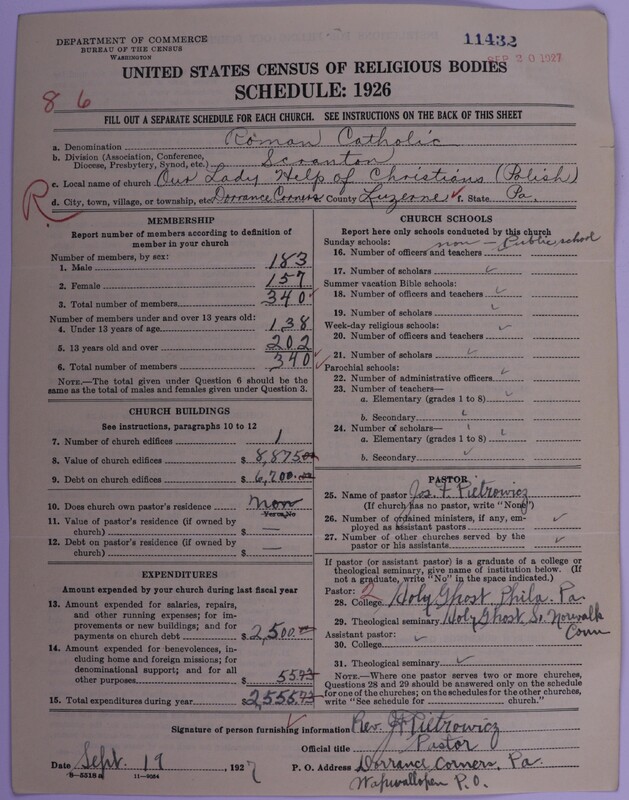 DEPARTMENT OF COMMERCE
BUREAU OF THE CENSUS
WASHINGTON
11432
SEP 20 1927
UNITED STATES CENSUS OF RELIGIOUS BODIES
SCHEDULE: 1926
8 6
FILL OUT A SEPARATE SCHEDULE FOR EACH CHURCH. SEE INSTRUCTIONS ON THE BACK OF THIS SHEET
a. Denomination Roman Catholic
b. Division (Association, Conference, Diocese, Presbytery, Synod, etc.) Scranton
c. Local name of church Our Lady Help of Christians (Polish)
R
d. City, town, village, or township, etc. Dorrance Corners County Luzerne f. State Pa.
MEMBERSHIP
Report number of members according to definition of
member in your church
Number of members, by sex:
1. Male 183
2. Female 157
3. Total number of members 340
Number of members under and over 13 years old:
4. Under 13 years of age 138
5. 13 years old and over 202
6. Total number of members 340
NOTE.—The total given under Question 6 should be the
same as the total of males and females given under Question 3.
CHURCH BUILDINGS
See instructions, paragraphs 10 to 12
7. Number of church edifices 1
8. Value of church edifices $ 8,875.00
9. Debt on church edifices $ 6,700.00
10. Does church own pastor's residence non
Yes or No
11. Value of pastor's residence (if owned by
church) $ —
12. Debt on pastor's residence (if owned by
church) $ —
EXPENDITURES
Amount expended by your church during last fiscal year
13. Amount expended for salaries, repairs,
and other running expenses; for im-
provements or new buildings; and for
payments on church debt $ 2,500.00
14. Amount expended for benevolences, in-
cluding home and foreign missions; for
denominational support; and for all
other purposes $ 55.73
15. Total expenditures during year $ 2,555.73
CHURCH SCHOOLS
Report here only schools conducted by this church
Sunday schools: non — Public school
16. Number of officers and teachers
17. Number of scholars
Summer vacation Bible schools:
18. Number of officers and teachers
19. Number of scholars
Week-day religious schools:
20. Number of officers and teachers
21. Number of scholars
Parochial schools:
22. Number of administrative officers
23. Number of teachers—
a. Elementary (grades 1 to 8)
b. Secondary
24. Number of scholars—
a. Elementary (grades 1 to 8)
b. Secondary
PASTOR
25. Name of pastor Jos. F. Pietrowicz
(If church has no pastor, write "None")
26. Number of ordained ministers, if any, em-
ployed as assistant pastors
27. Number of other churches served by the
pastor or his assistants
If pastor (or assistant pastor) is a graduate of a college or
theological seminary, give name of institution below. (If
not a graduate, write "No" in the space indicated.)
Pastor: 2
28. College Holy Ghost Phila. Pa.
29. Theological seminary Holy Ghost So. Norwalk
Conn
Assistant pastor:
30. College
31. Theological seminary
NOTE.—Where one pastor serves two or more churches,
Questions 28 and 29 should be answered only on the schedule
for one of the churches; on the schedules for the other churches,
write "See schedule for church."
Signature of person furnishing information Rev. J F Pietrowicz
Official title Pastor
Date Sept. 19, 1927 P. O. Address Dorrance Corners, Pa.
Wapwallopen P.O.
8-5318 a 11-9064